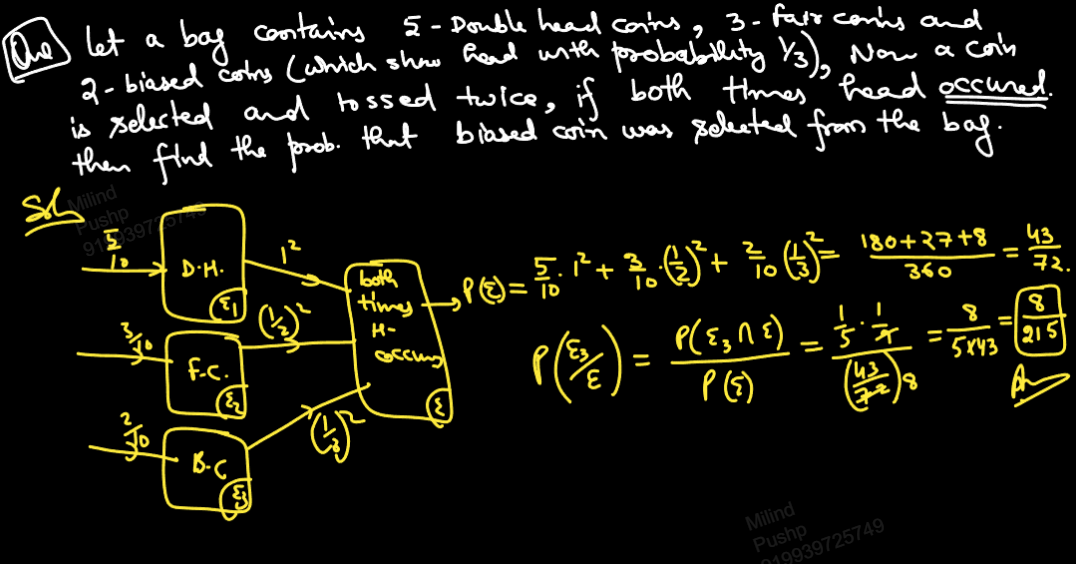 Que Let a bag contains 5 - Double head coins, 3 - fair coins and
2 - biased coins (which show head with probability 1/3), Now a coin
is selected and tossed twice, if both times head occured.
then find the prob. that biased coin was selected from the bag.
Sol
5/10 D.H. ε₁ 1²
3/10 F.C. ε₂ (1/2)²
2/10 B.C ε₃ (1/3)²
both
times
H-
occurs
ε
P(ε) = 5/10 · 1² + 3/10 · (1/2)² + 2/10 (1/3)² = 180+27+8/360 = 43/72.
P(ε₃/ε) = P(ε₃ ∩ ε)/P(ε) = 1/5 · 1/9 / (43/72) 8 = 8/5×43 = 8/215
Ans
Milind
Pushp
919939725749
Milind
Pushp
919939725749